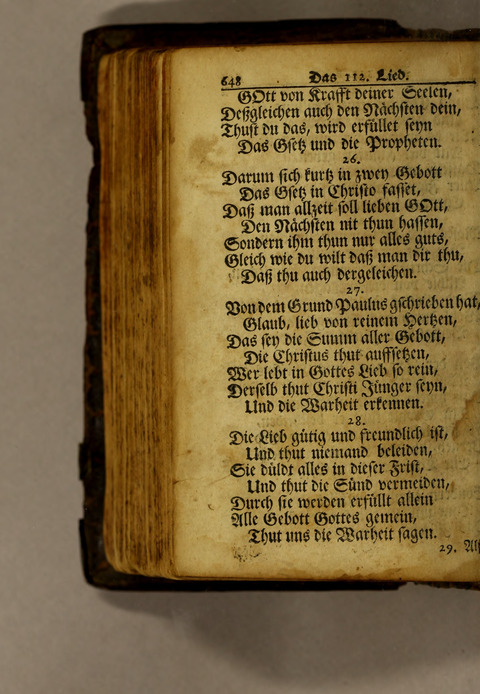 648 Das 112. Lied.
GOtt von Krafft deiner Seelen,
Deßgleichen auch den Nächsten dein,
Thust du das, wird erfüllet seyn
Das Gsetz und die Propheten.
26.
Darum sich kurtz in zwey Gebott
Das Gsetz in Christo fasset,
Daß man allzeit soll lieben GOtt,
Den Nächsten nit thun hassen,
Sondern ihm thun nur alles guts,
Gleich wie du wilt daß man dir thu,
Daß thu auch dergeleichen.
27.
Von dem Grund Paulus gschrieben hat,
Glaub, lieb von reinem Hertzen,
Das sey die Summ aller Gebott,
Die Christus thut auffsetzen,
Wer lebt in Gottes Lieb so rein,
Derselb thut Christi Jünger seyn,
Und die Warheit erkennen.
28.
Die Lieb gütig und freundlich ist,
Und thut niemand beleiden,
Sie düldt alles in dieser Frist,
Und thut die Sünd vermeiden,
Durch sie werden erfüllt allein
Alle Gebott Gottes gemein,
Thut uns die Warheit sagen.
29. Als